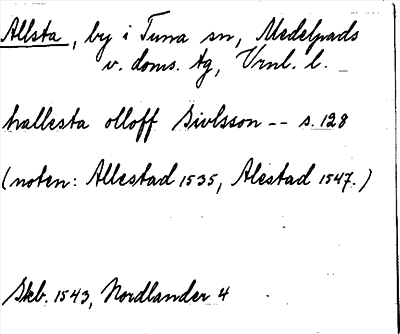 Allsta, by i Tuna sn, Medelpads
v. doms. tg, Vrnl. l.
hallesta olloff Sivlsson -- s. 128
(noten: Allestad 1535, Alestad 1547.)
Skb. 1543, Nordlander 4